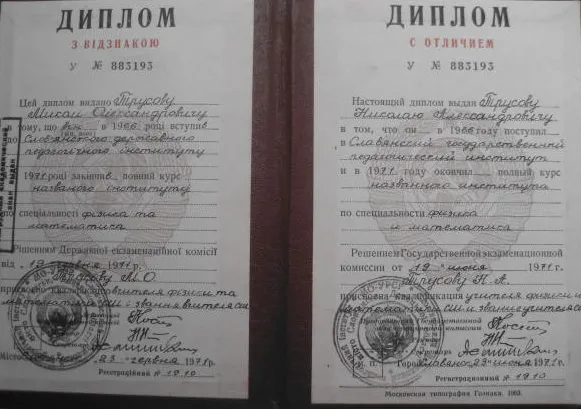 ДИПЛОМ
З ВІДЗНАКОЮ
У № 883193
Цей диплом видано Трусову
Олександровичу
в тому, що він в 1966 році вступив
до Слов'янського державного
педагогічного інституту
1971 році закінчив повний курс
названого інституту
по спеціальності фізика та
математика
Рішенням Державної екзаменаційної комісії
від 19 червня 1971 р.
Трусову М.О.
вчителя фізики та
математики і звання вчителя
23 червня 1971 р.
Реєстраційний № 1910
ДИПЛОМ
С ОТЛИЧИЕМ
У № 883193
Настоящий диплом выдан Трусову
Николаю Александровичу
в том, что он в 1966 году поступил
в Славянский государственный
педагогический институт
и в 1971 году окончил полный курс
названного института
по специальности физика
и математика
Решением Государственной экзаменационной
комиссии от 19 июня 1971 г.
Трусову Н. А.
присвоена квалификация учителя физики и
математики и звание учителя
Город 23 июня 1971 г.
Регистрационный № 1910
Московская типография Гознака. 1963.